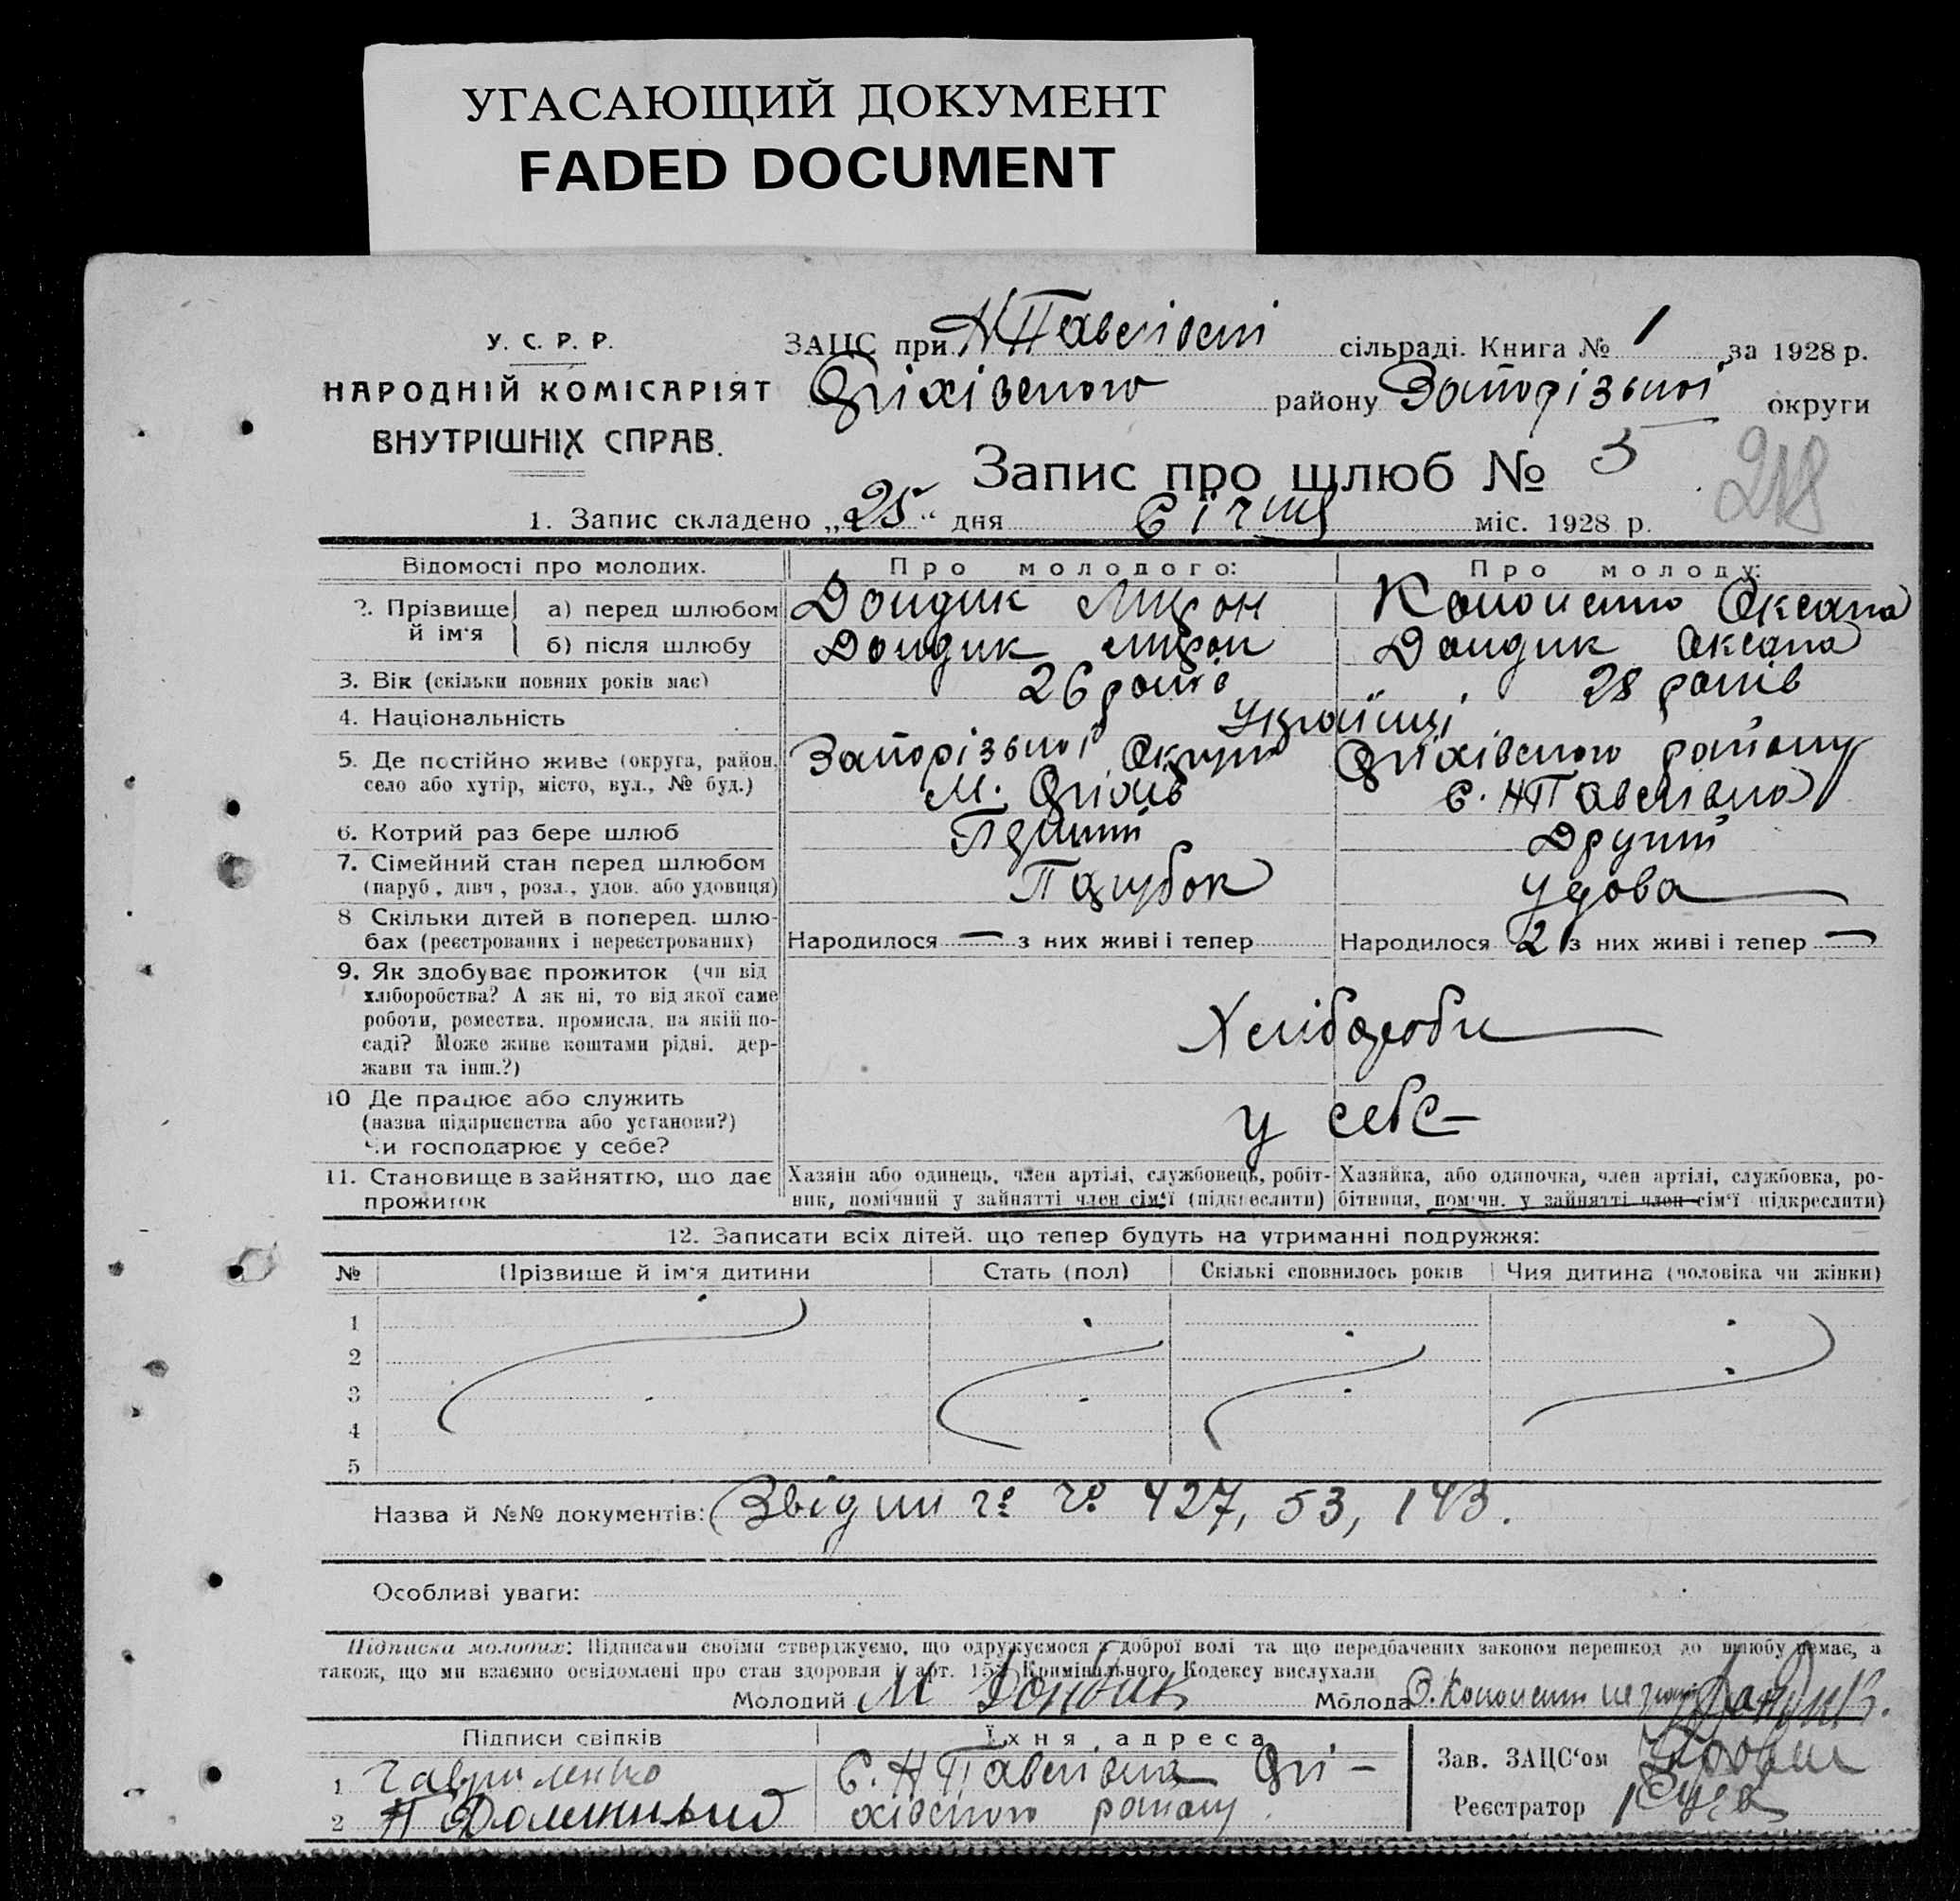 УГАСАЮЩИЙ ДОКУМЕНТ
FADED DOCUMENT
У. С. Р. Р.
НАРОДНІЙ КОМІСАРІЯТ
ВНУТРІШНІХ СПРАВ.
ЗАЦС при Н Павлівські сільраді. Книга № 1 за 1928 р.
Оріхівського району Запорізької округи
Запис про шлюб № 5
218
1. Запис складено „25“ дня Січня міс. 1928 р.
Відомості про молодих. Про молодого: Про молоду:
2. Прізвище й ім‘я а) перед шлюбом Дондик Мирон Кононенко Оксана
б) після шлюбу Дондик Мирон Дондик Оксана
3. Вік (скільки повних років має) 26 років 28 років
4. Національність Українці
5. Де постійно живе (округа, район, Запорізької Округи Оріхівського району
село або хутір, місто, вул., № буд.) М. Оріхів С. Н Павлівка
6. Котрий раз бере шлюб Перший Другий
7. Сімейний стан перед шлюбом
(паруб., дівч., розл., удов. або удовиця) Парубок Удова
8 Скільки дітей в поперед. шлю-
бах (реєстрованих і нереєстрованих) Народилося — з них живі і тепер Народилося 2 з них живі і тепер —
9. Як здобуває прожиток (чи від
хліборобства? А як ні, то від якої саме
роботи, ремества, промисла, на якій по-
саді? Може живе коштами рідні, дер-
жави та інш.?) Хлібороби
10 Де працює або служить
(назва підприємства або установи?)
Чи господарює у себе? у себе
11. Становище в зайняттю, що дає
прожиток
Хазяїн або одинець, член артілі, службовець, робіт-
ник, помічний у зайнятті член сім‘ї (підкреслити)
Хазяйка, або одиночка, член артілі, службовка, ро-
бітниця, помічн. у зайнятті член сім‘ї підкреслити)
12. Записати всіх дітей, що тепер будуть на утриманні подружжя:
№ Прізвище й ім‘я дитини Стать (пол) Скількі сповнилось років Чия дитина (чоловіка чи жінки)
1
2
3
4
5
Назва й №№ документів: 427, 53, 143.
Особливі уваги:
Підписка молодих: Підписами своїми стверджуємо, що одружуємося з доброї волі та що передбачених законом перешкод до шлюбу немає, а
також, що ми взаємно освідомлені про стан здоровля і арт. 155 Кримінального Кодексу вислухали
Молодий М Дондик Молода О. Кононенко
Підписи свідків Їхня адреса
1 Гавриленко С. Н Павлівка Орі-
2 хівського району.
Зав. ЗАЦС‘ом
Реєстратор